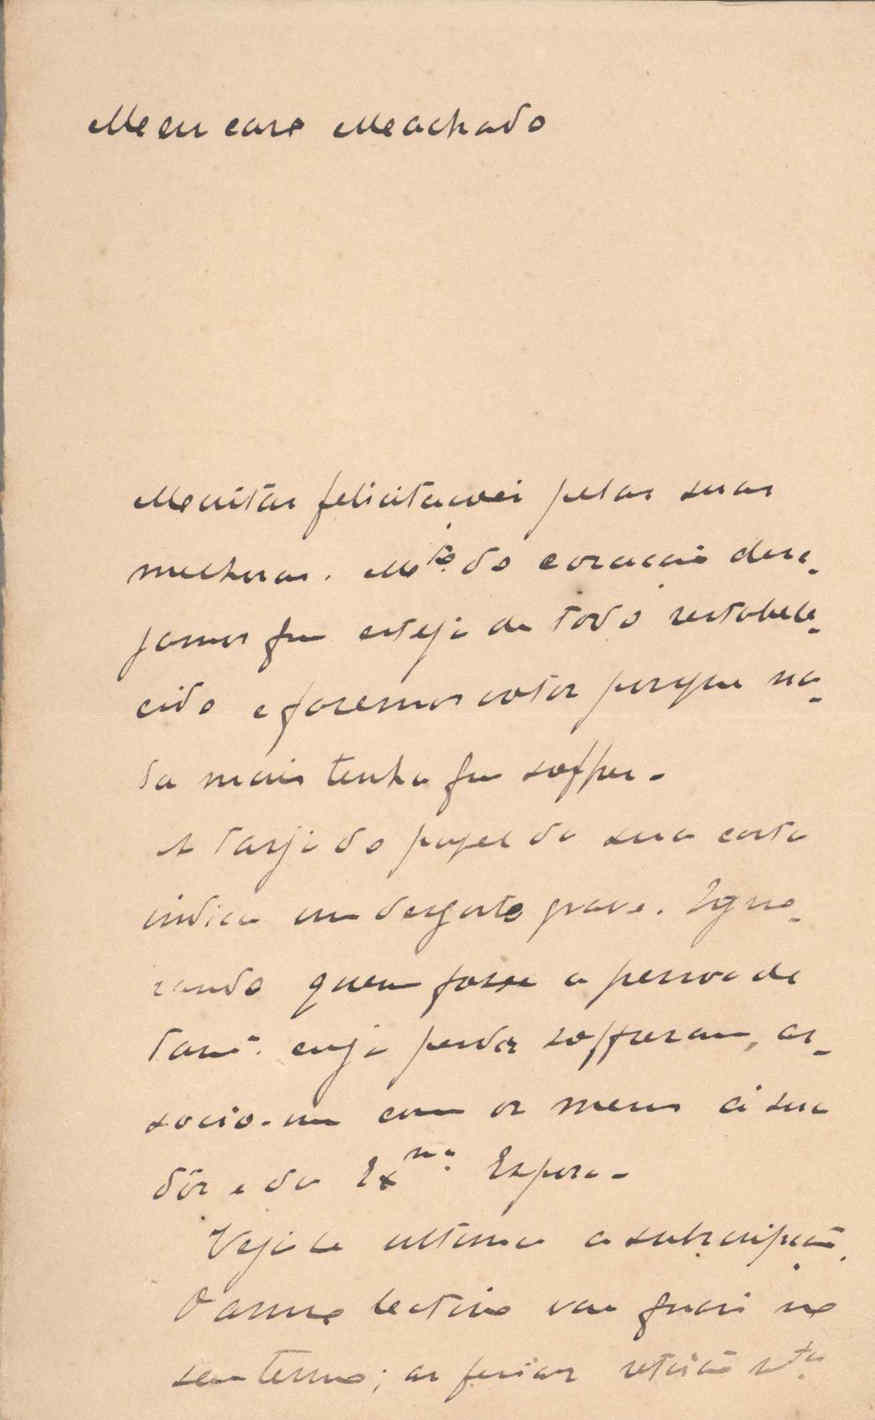 Meu caro Machado
Muitas felicitações pelas suas
melhoras. M.to do coração dese-
jamos que esteja de todo restabele-
cido e fazemos votos porque na-
da mais tenha que soffrer.
A tarja do papel da sua carta
indica um desgosto grave. Igno-
rando quem fosse a pessoa de
fam.a cuja perda soffreram, as-
socio-me com os meus á sua
dôr e da Ex.ma Espoza.
Veja se ultima a subscripção.
O anno lectivo vae quasi no
seu termo; as ferias